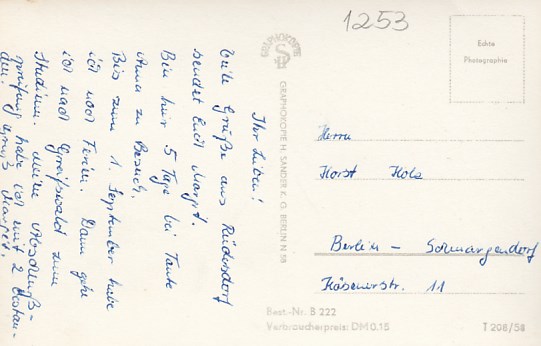 1253
Echte
Photographie
GRAPHOKOPIE
GRAPHOKOPIE H. SANDER K. G. BERLIN N 58
Ihr Lieben!
Viele Grüße aus Rüdersdorf
sendet Euch Margit.
Bin hier 5 Tage bei Tante
Anna zu Besuch.
Bis zum 1. September habe
ich noch Ferien. Dann gehe
ich nach Greifswald zum
Studium. Meine Abschluß-
prüfung habe ich mit 2 bestan-
den. Gruß Margit.
Herrn
Horst Holz
Berlin - Schmargendorf
Kösenerstr. 11
Best.-Nr. B 222
Verbraucherpreis: DM 0.15
T 208/58